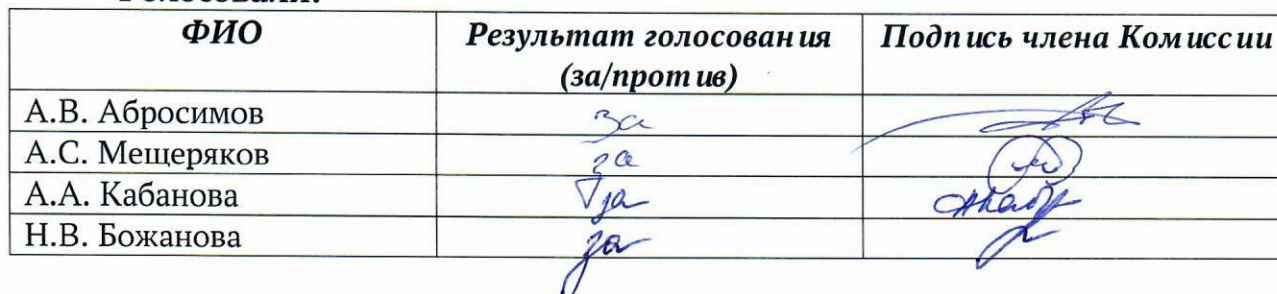 ФИО Результат голосования Подпись члена Комиссии
(за/против)
А.В. Абросимов за
А.С. Мещеряков за
А.А. Кабанова за
Н.В. Божанова за